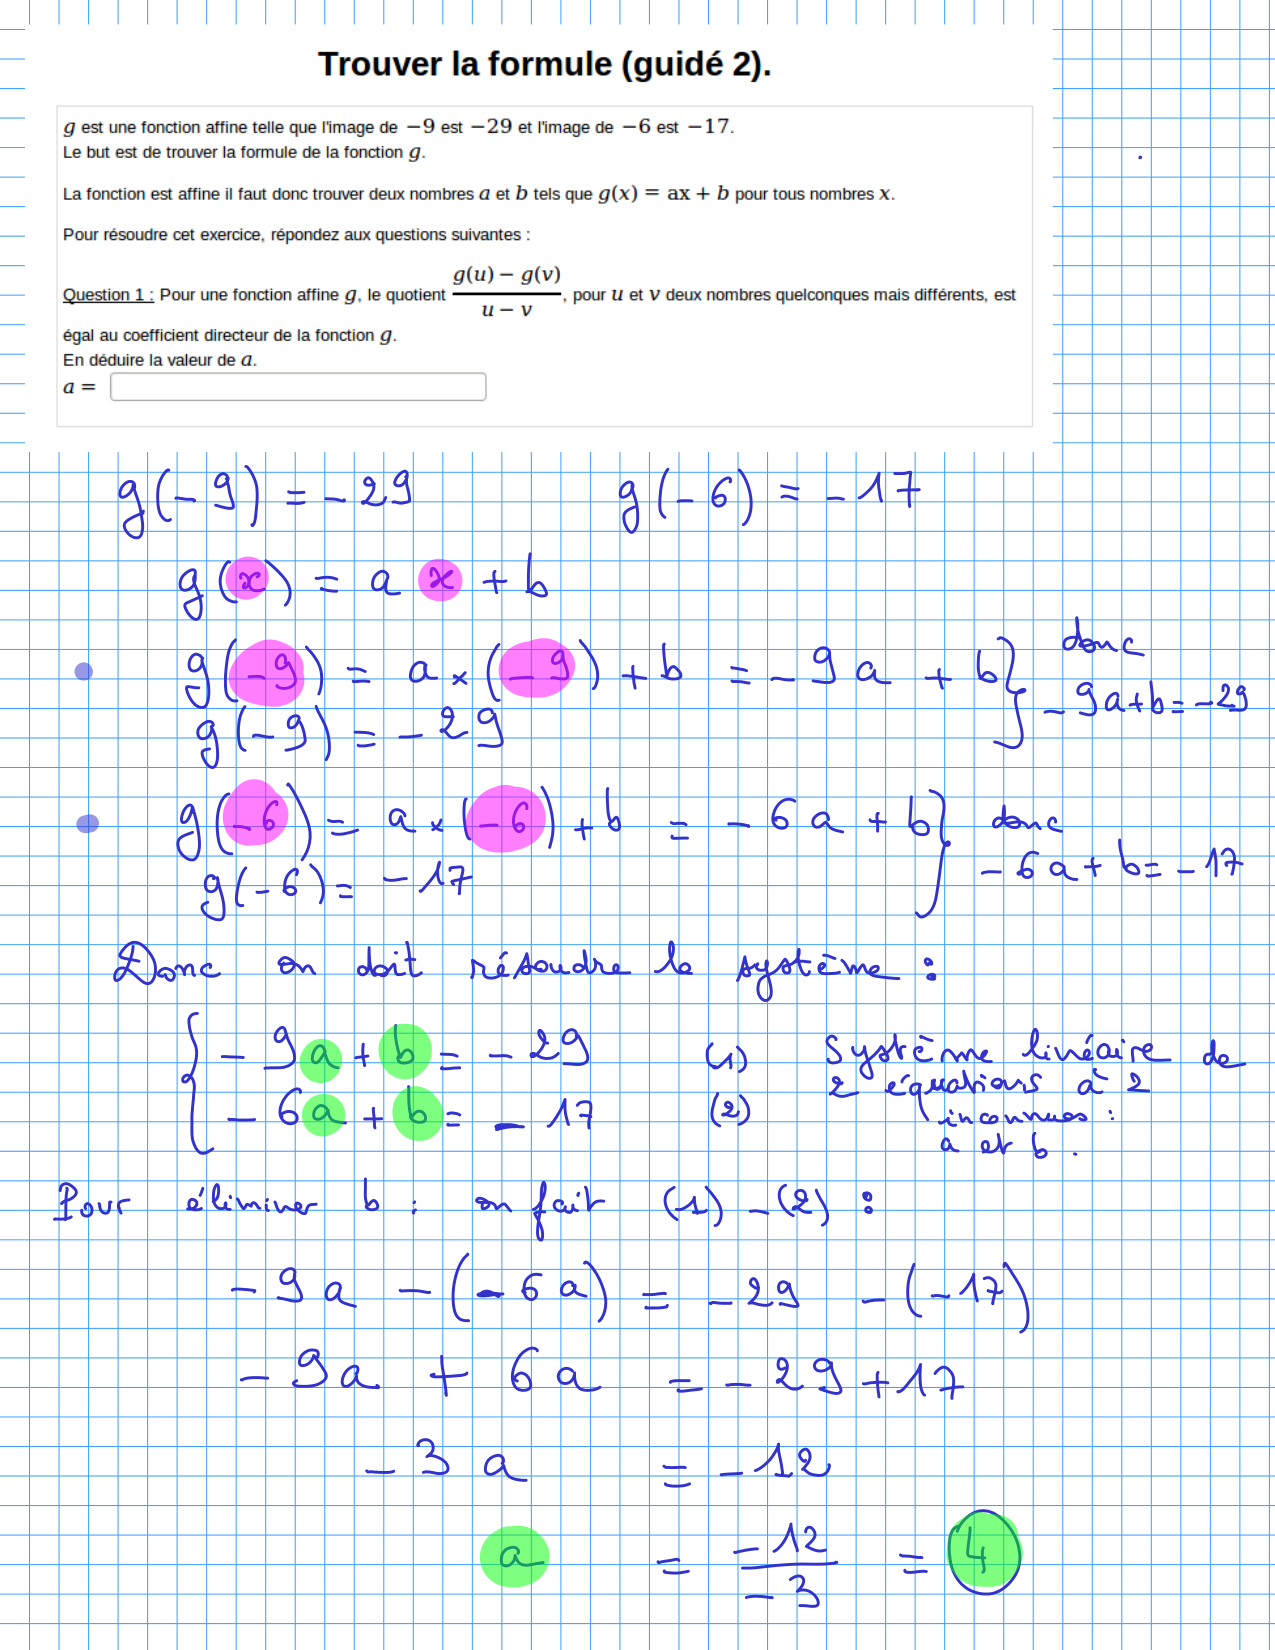 Trouver la formule (guidé 2).
g est une fonction affine telle que l'image de −9 est −29 et l'image de −6 est −17.
Le but est de trouver la formule de la fonction g.
La fonction est affine il faut donc trouver deux nombres a et b tels que g(x) = ax + b pour tous nombres x.
Pour résoudre cet exercice, répondez aux questions suivantes :
Question 1 : Pour une fonction affine g, le quotient (g(u) − g(v))/(u − v), pour u et v deux nombres quelconques mais différents, est
égal au coefficient directeur de la fonction g.
En déduire la valeur de a.
a =
g(-9) = -29 g(-6) = -17
g(x) = a x + b
g(-9) = a × (-9) + b = -9a + b } donc
g(-9) = -29 -9a+b = -29
g(-6) = a × (-6) + b = -6a + b } donc
g(-6) = -17 -6a + b = -17
Donc on doit résoudre le système :
{ -9a + b = -29 (1) Système linéaire de
2 équations à 2
-6a + b = -17 (2) inconnues :
a et b.
Pour éliminer b : on fait (1) - (2) :
-9a - (-6a) = -29 - (-17)
-9a + 6a = -29 + 17
-3a = -12
a = -12/-3 = 4